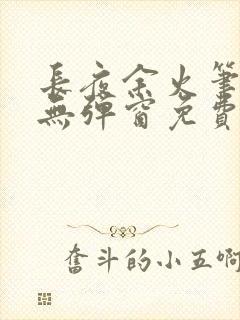 長夜余火筆
無彈窗免費
奮斗的小五啊